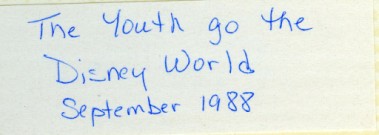 The Youth go the
Disney World
September 1988